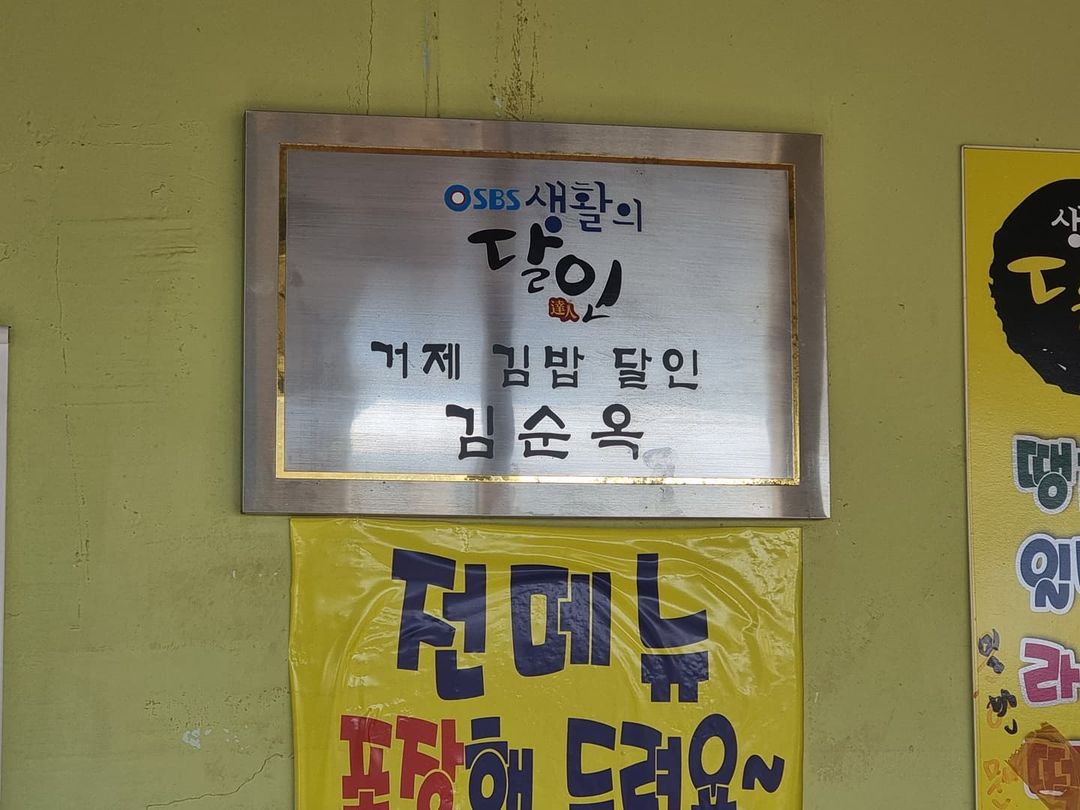 SBS 생활의
달인
達人
거제 김밥 달인
김순옥
전메뉴
포장해 드려요~